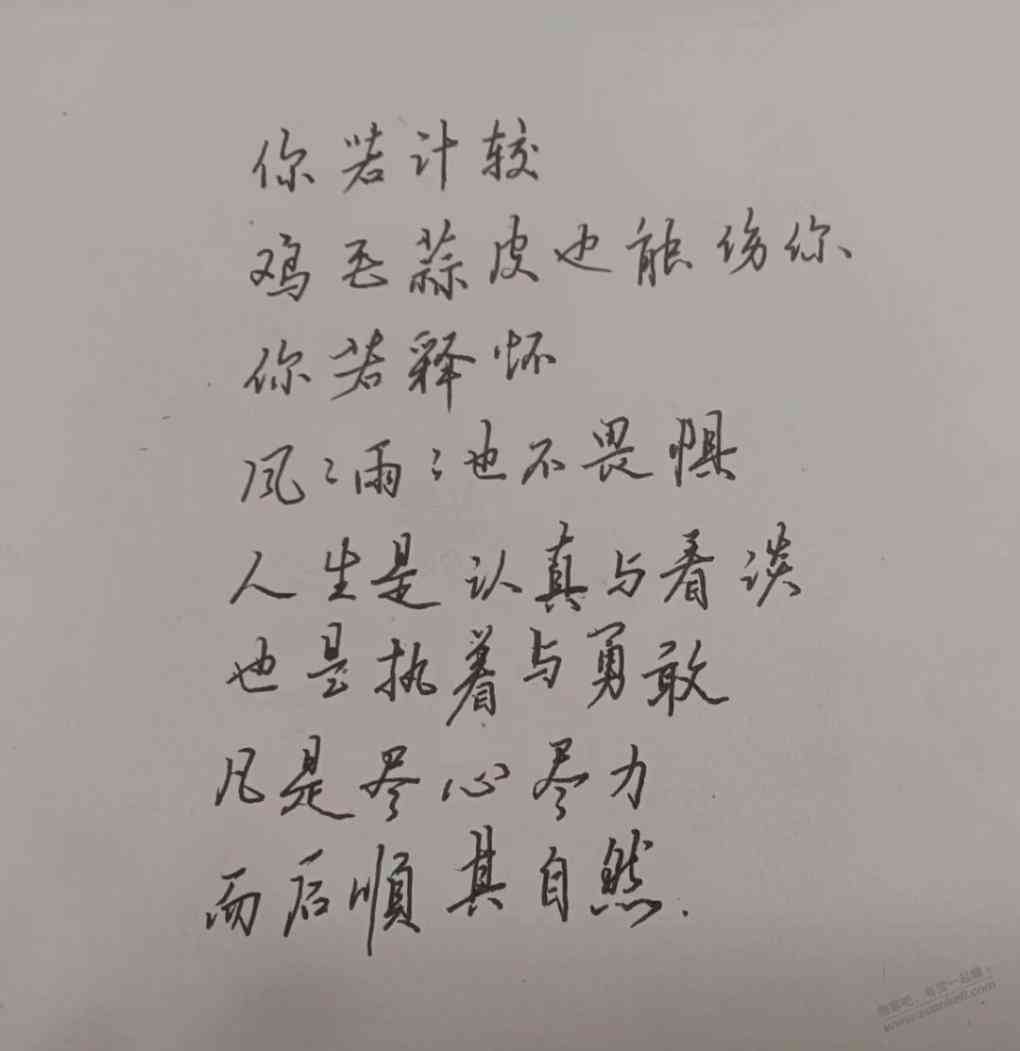 你若计较
鸡毛蒜皮也能伤你
你若释怀
风风雨雨也不畏惧
人生是认真与看淡
也是执着与勇敢
凡是尽心尽力
而后顺其自然.
www.zuanke8.com